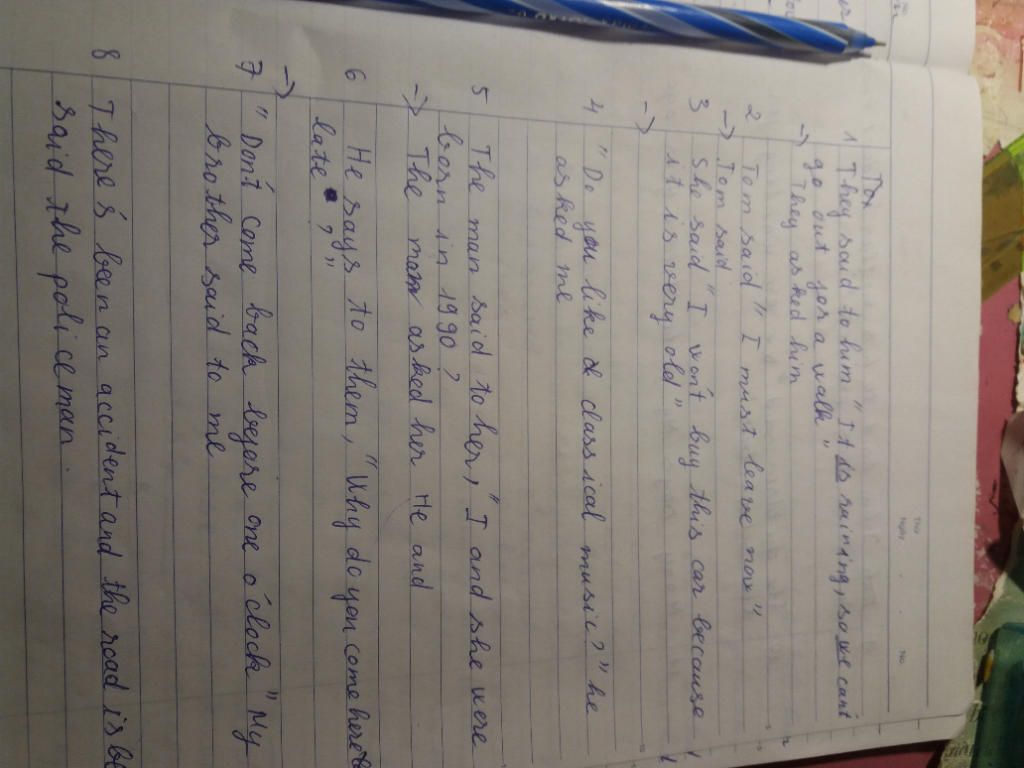 1 They said to him "It is raining, so we can't
go out for a walk"
-> They asked him
2 Tom said "I must leave now"
-> Tom said
3 She said "I won't buy this car because
-> it is very old"
4 "Do you like classical music?" he
asked me
5 The man said to her, "I and she were
born in 1990?
-> The man asked her He and
6 He says to them, "Why do you come here
late?"
->
7 "Don't come back before one o'clock" My
brother said to me
8 There's been an accident and the road is
said the policeman.